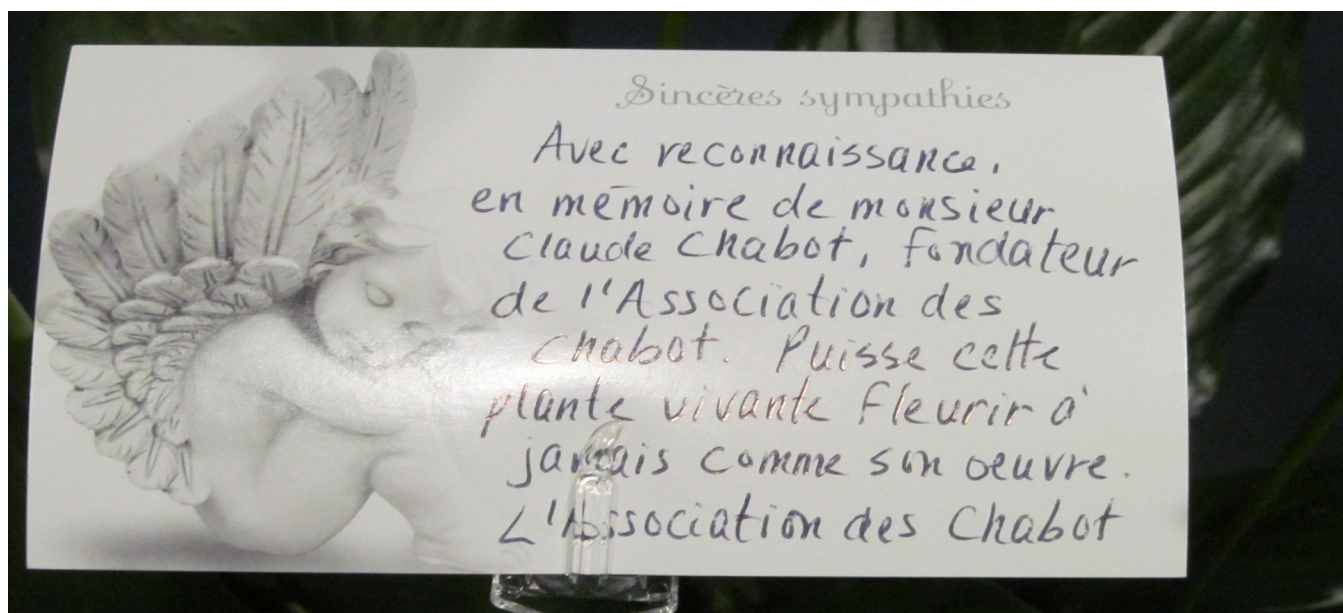 Sincères sympathies
Avec reconnaissance,
en mémoire de monsieur
Claude Chabot, fondateur
de l'Association des
Chabot. Puisse cette
plante vivante fleurir à
jamais comme son oeuvre.
L'Association des Chabot